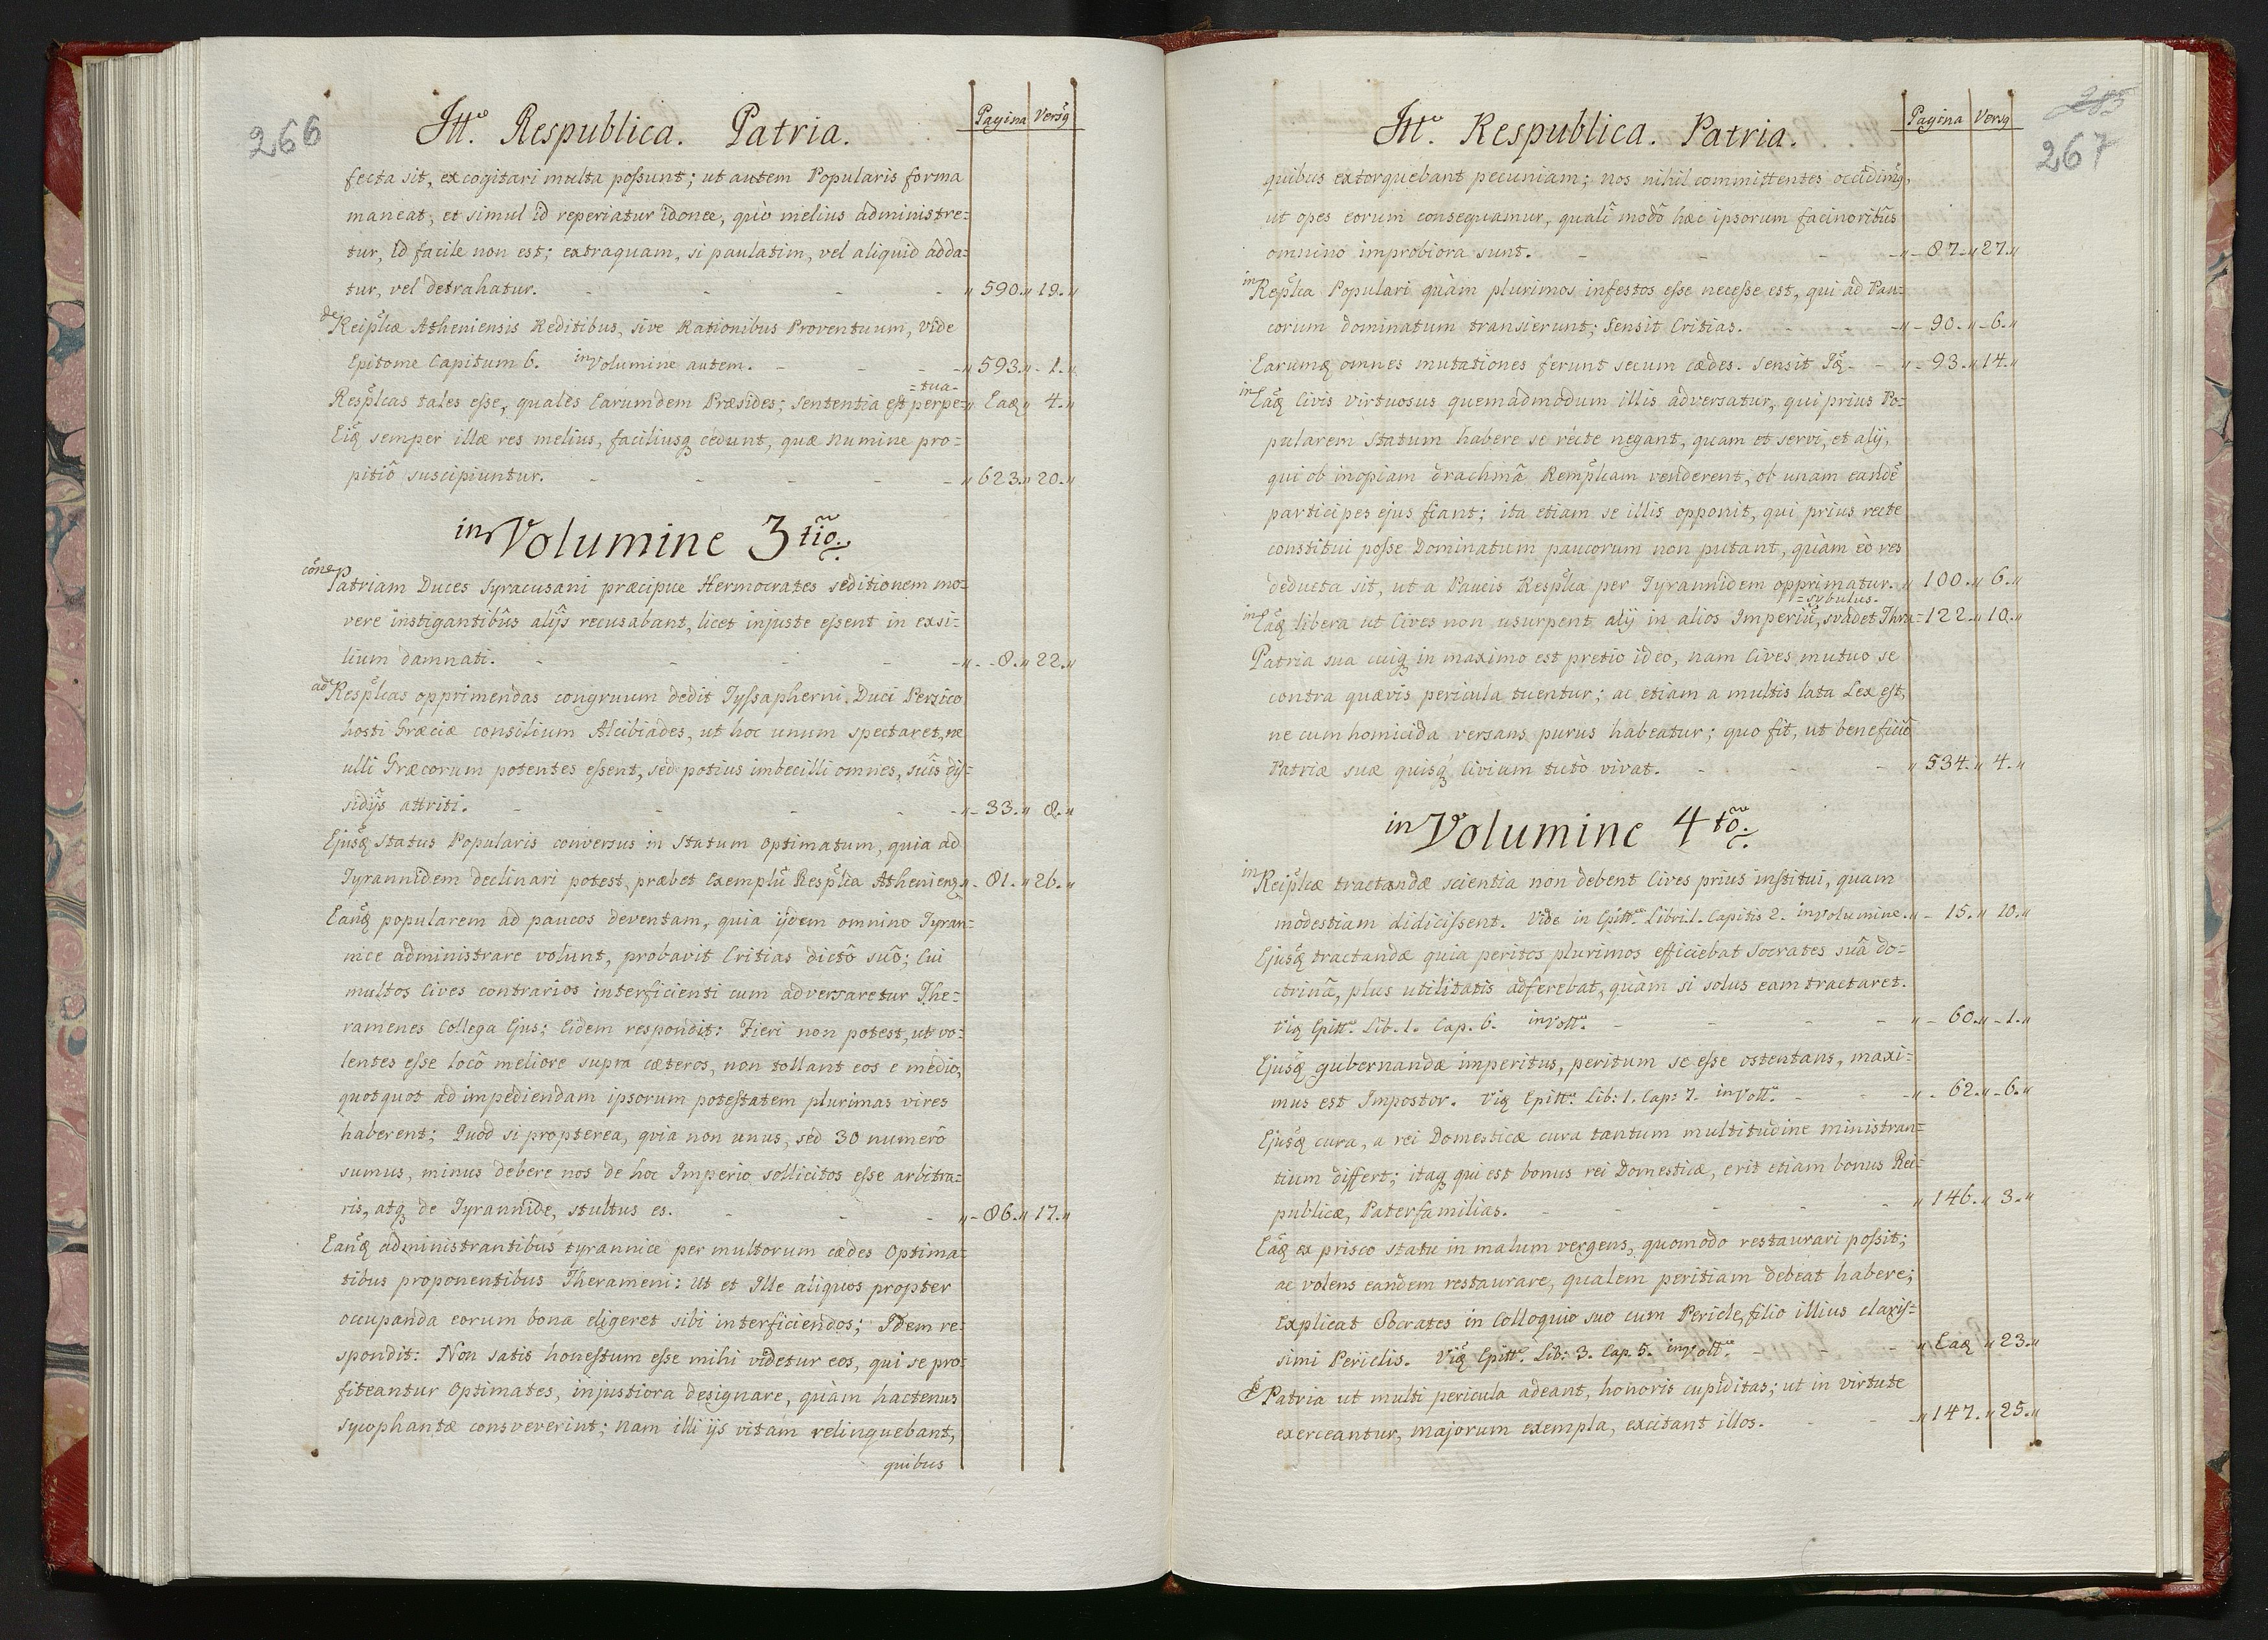 266
Itt͂o Respublica. Patria.
Pagina Versq̃
fecta sit, excogitari multa possunt; ut autem Popularis forma
maneat, et simul id reperiatur idonee, quò melius administre=
tur, id facile non est; extraquam, si paulatim, vel aliquid adda=
tur, vel detrahatur. - - - - „ 590.„ 19.„
de Reip̃lcæ Atheniensis Reditibus, sive Rationibus Proventuum, vide
Epitome Capitum 6. in Volumine autem. - - - -„ 593.„ - 1.„
=tua-
Resp̃lcas tales esse, quales Earumdem Præsides; sententia est perpe=„ Eaq̃„ 4.„
Eiq̃ semper illæ res melius, faciliusq̃ cedunt, quæ Numine pro=
pitiô suscipiuntur. - - - - -„ 623.„ 20.„
in Volumine 3tio.
cõne Patriam Duces Syracusani præcipue Hermocrates seditionem mo=
vere instigantibûs alijs recusabant, licet injuste essent in exsi=
lium damnati. - - - - -„ - 8.„ 22.„
ad Resp̃lcas opprimendas congruum dedit Tyssapherni Duci Persico
hosti Græciæ consilium Alcibiades, ut hoc unum spectaret, ne
ulli Græcorum potentes essent, sed potius imbecilli omnes, suis dis=
sidijs attriti. - - - - -„- 33.„ 8.„
Ejusq̃ Status Popularis conversus in Statum Optimatum, quia ad
Tyrannidem declinari potest, præbet Exemplũ Resp̃lca Atheniensq̃„ - 81.„ 26.„
Eanq̃ popularem ad paucos deventam, quia ijdem omnino Tyran=
nice administrare volunt, probavit Critias dictô suô; Cui
multos Cives contrarios interficienti cum adversaretur The=
ramenes Collega Ejus: Eidem respondit: Fieri non potest, ut vo=
lentes esse locô meliore supra cæteros, non tollant eos e medio,
quotquot ad impediendam ipsorum potestatem plurimas vires
haberent; Quod si propterea, quia non unus, sed 30 numerô
sumus, minus debere nos de hoc Imperio sollicitos esse arbitra=
ris, atq̃ de Tyrannide, stultus es. - - - „- 86.„ 17.„
Eanq̃ administrantibus tyrannice per multorum cædes Optima=
tibus proponentibus Therameni: Ut et Ille aliquos propter
occupanda eorum bona eligeret sibi interficiendos; Idem re=
spondit: Non satis honestum esse mihi videtur eos, qui se pro=
fiteantur Optimates, injustiora designare, quàm hactenus
sycophantæ consveverint; nam illi ijs vitam relinquebant,
quibus
285
267
Itt͂o Respublica. Patria.
Pagina Versq̃
quibus extorquebant pecuniam; nos nihil committentes occidimq̃,
ut opes eorum consequamur, qualî modô hæc ipsorum facinoribûs
omnino improbiora sunt. - - - -„- 87.„ 27.„
in Rep̃lca Populari quàm plurimos infestos esse necesse est, qui ad Pau=
corum dominatum transierunt; Sensit Critias. - - -„- 90.„ -6.„
Earumq̃ omnes mutationes ferunt secum cædes. Sensit Iq̃ - - „- 93.„ 14.„
in Eaq̃ Civis virtuosus quemadmodum illis adversatur, qui prius Po=
pularem Statum habere se recte negant, quam et servi, et alij,
qui ob inopiam drachmâ Remp̃lcam venderent, ob unam eandẽ
participes ejus fiant; ita etiam se illis opponit, qui prius recte
constitui posse Dominatum paucorum non putant, quàm eò res
deducta sit, ut a Paucis Resp̃lca per Tyrannidem opprimatur. „ 100.„ 6.„
=sybulus.
in Eaq̃ libera ut Cives non usurpent alij in alios Imperiũ, svadet Thra= 122.„ 10.„
Patria sua cuiq̃ in maximo est pretio ideo, nam Cives mutuo se
contra quævis pericula tuentur; ac etiam a multis lata Lex est,
ne cum homicida versans purus habeatur; quo fit, ut beneficiô
Patriæ suæ quisq̃ Civium tutò vivat. - - - „ 534.„ 4.„
in Volumine 4to.
in Reip̃lcæ tractandæ scientia non debent Cives prius institui, quam
modestiam didicissent. Vide in Epitt͂e Libri 1. Capitis 2. in Volumine. „- 15.„ 10.„
Ejusq̃ tractandæ quia peritos plurimos efficiebat Socrates suâ do=
ctrinâ, plus utilitatis adferebat, quàm si solus eam tractaret.
Viq̃ Epitt͂e Lib. 1. Cap. 6. in Voll͂e - - - - „- 60.„ - 1.„
Ejusq̃ gubernandæ imperitus, peritum se esse ostentans, maxi=
mus est Impostor. Viq̃ Epitt͂e Lib: 1. Cap: 7. in Voll͂e - - -„- 62.„ -6.„
Ejusq̃ cura, a rei Domesticæ cura tantum multitudine ministran=
tium differt; itaq̃ qui est bonus rei Domesticæ, erit etiam bonus Rei=
publicæ, Paterfamilias. - - - - - „ 146.„ 3.„
Eaq̃ ex prisco statu in malum vergens, quomodo restaurari possit;
ac volens eandem restaurare, qualem peritiam debeat habere;
Explicat Socrates in Colloquio suo cum Pericle, filio illius claris=
simi Periclis. Viq̃ Epitt͂e Lib: 3. Cap. 5. in Voll͂e - - - „ Eaq̃ „ 23.„
Patria ut multi pericula adeant, honoris cupiditas; ut in virtute
exerceantur, majorum exempla, excitant illos. - - -„ 147.„ 25.„